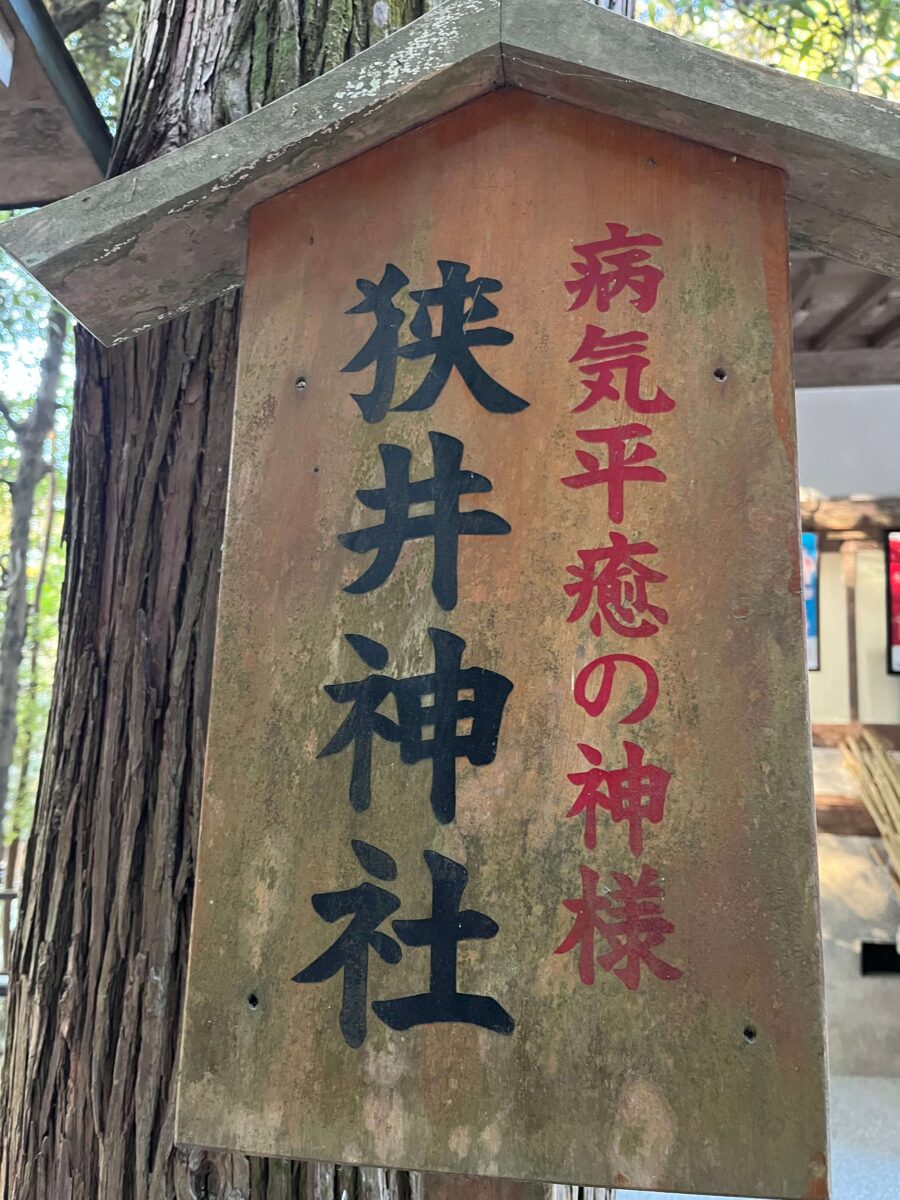 病気平癒の神様
狭井神社